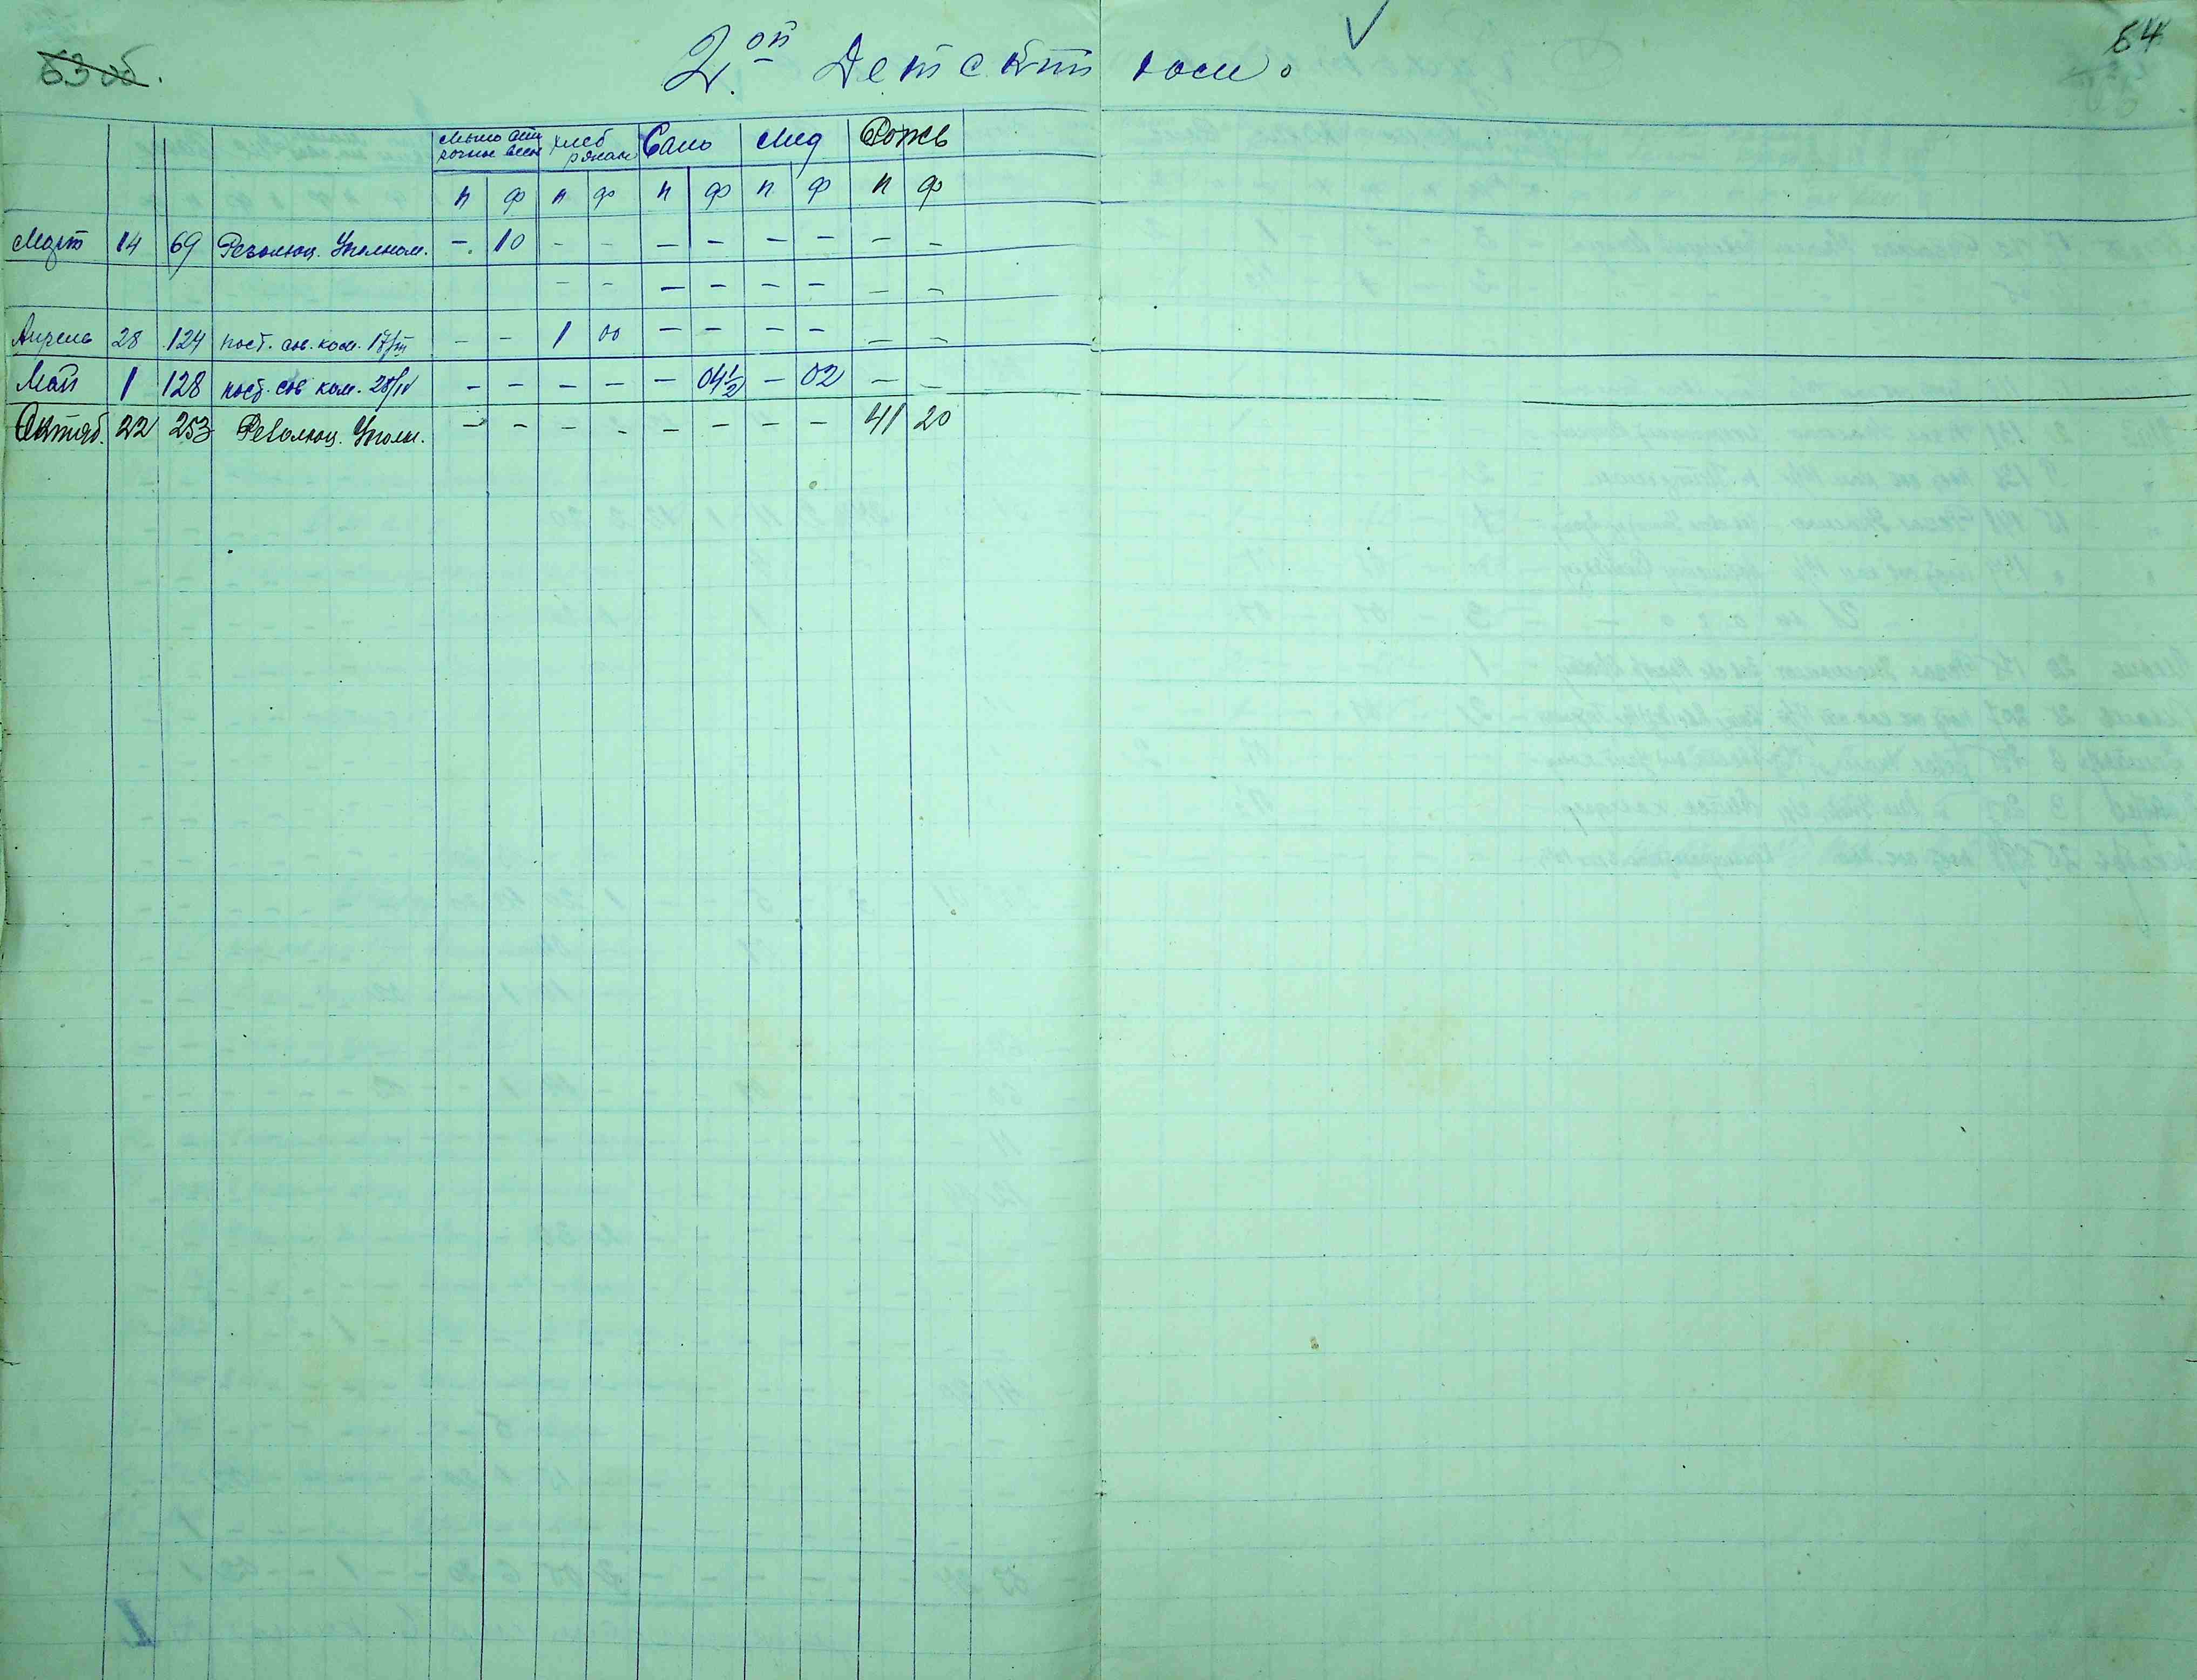 63 об.
64
2ой Детский дом.
Мыло хлеб ржан Сало Мед Рожь
п ф п ф п ф п ф п ф
Март 14 69 Резолюц. Уполном. - 10 - - - - - - - -
- - - - - - - -
Апрель 28 124 пост. сов. ком. 17/III - - 1 00 - - - - - -
Май 1 128 пост. сов ком. 28/IV - - - - - 04½ - 02 - -
Октяб. 22 253 Резолюц. Уполн. - - - - - - - - 41 20